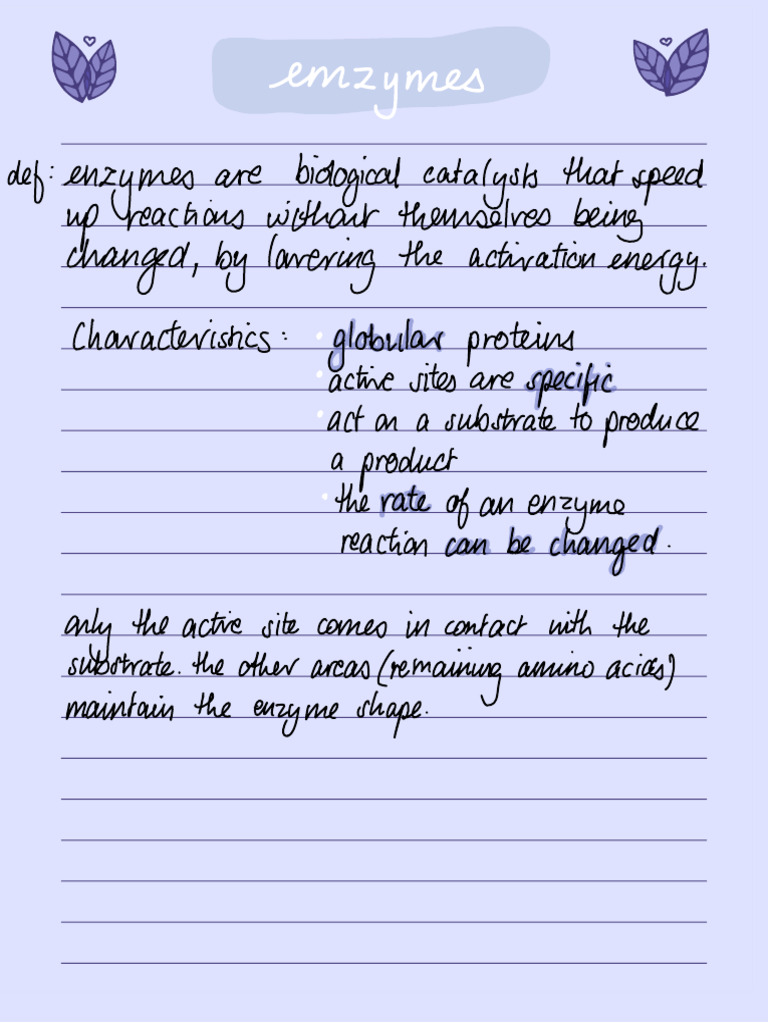 emzymes
def: enzymes are biological catalysts that speed
up reactions without themselves being
changed, by lowering the activation energy.
Characteristics: • globular proteins
• active sites are specific
• act on a substrate to produce
a product
• the rate of an enzyme
reaction can be changed.
only the active site comes in contact with the
substrate. the other areas (remaining amino acids)
maintain the enzyme shape.